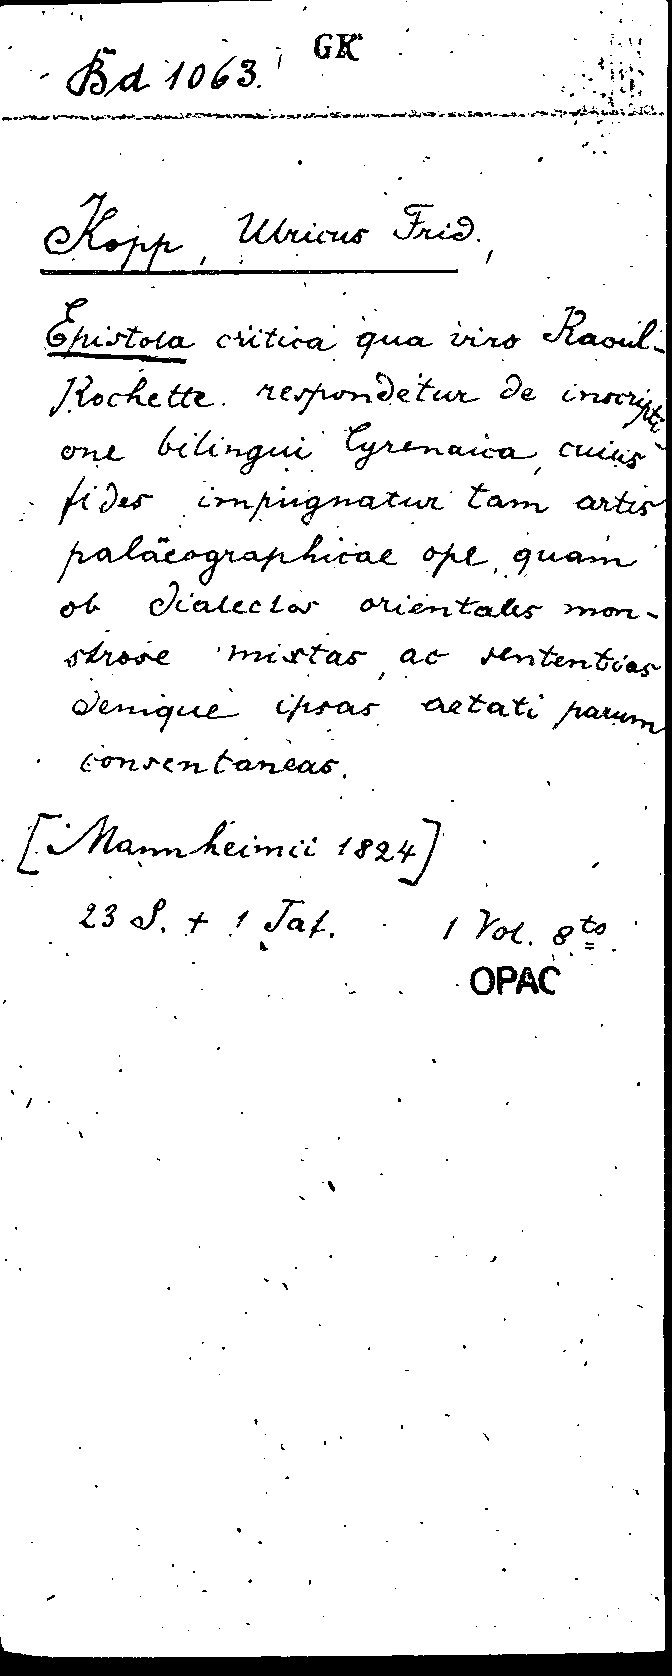 GK
Bd 1063.
Kopp, Ulricus Frid.,
Epistola critica qua viro Raoul-
Rochette respondetur de inscripti-
one bilingui Cyrenaica, cuius
fides impugnatur tam artis
palaeographicae ope, quam
ob dialectos orientales mon-
strose mixtas, ac sententias
denique ipsas aetati parum
consentaneas.
[Mannheimii 1824]
23 S. + 1 Taf. 1 Vol. 8ᵗᵒ
OPAC